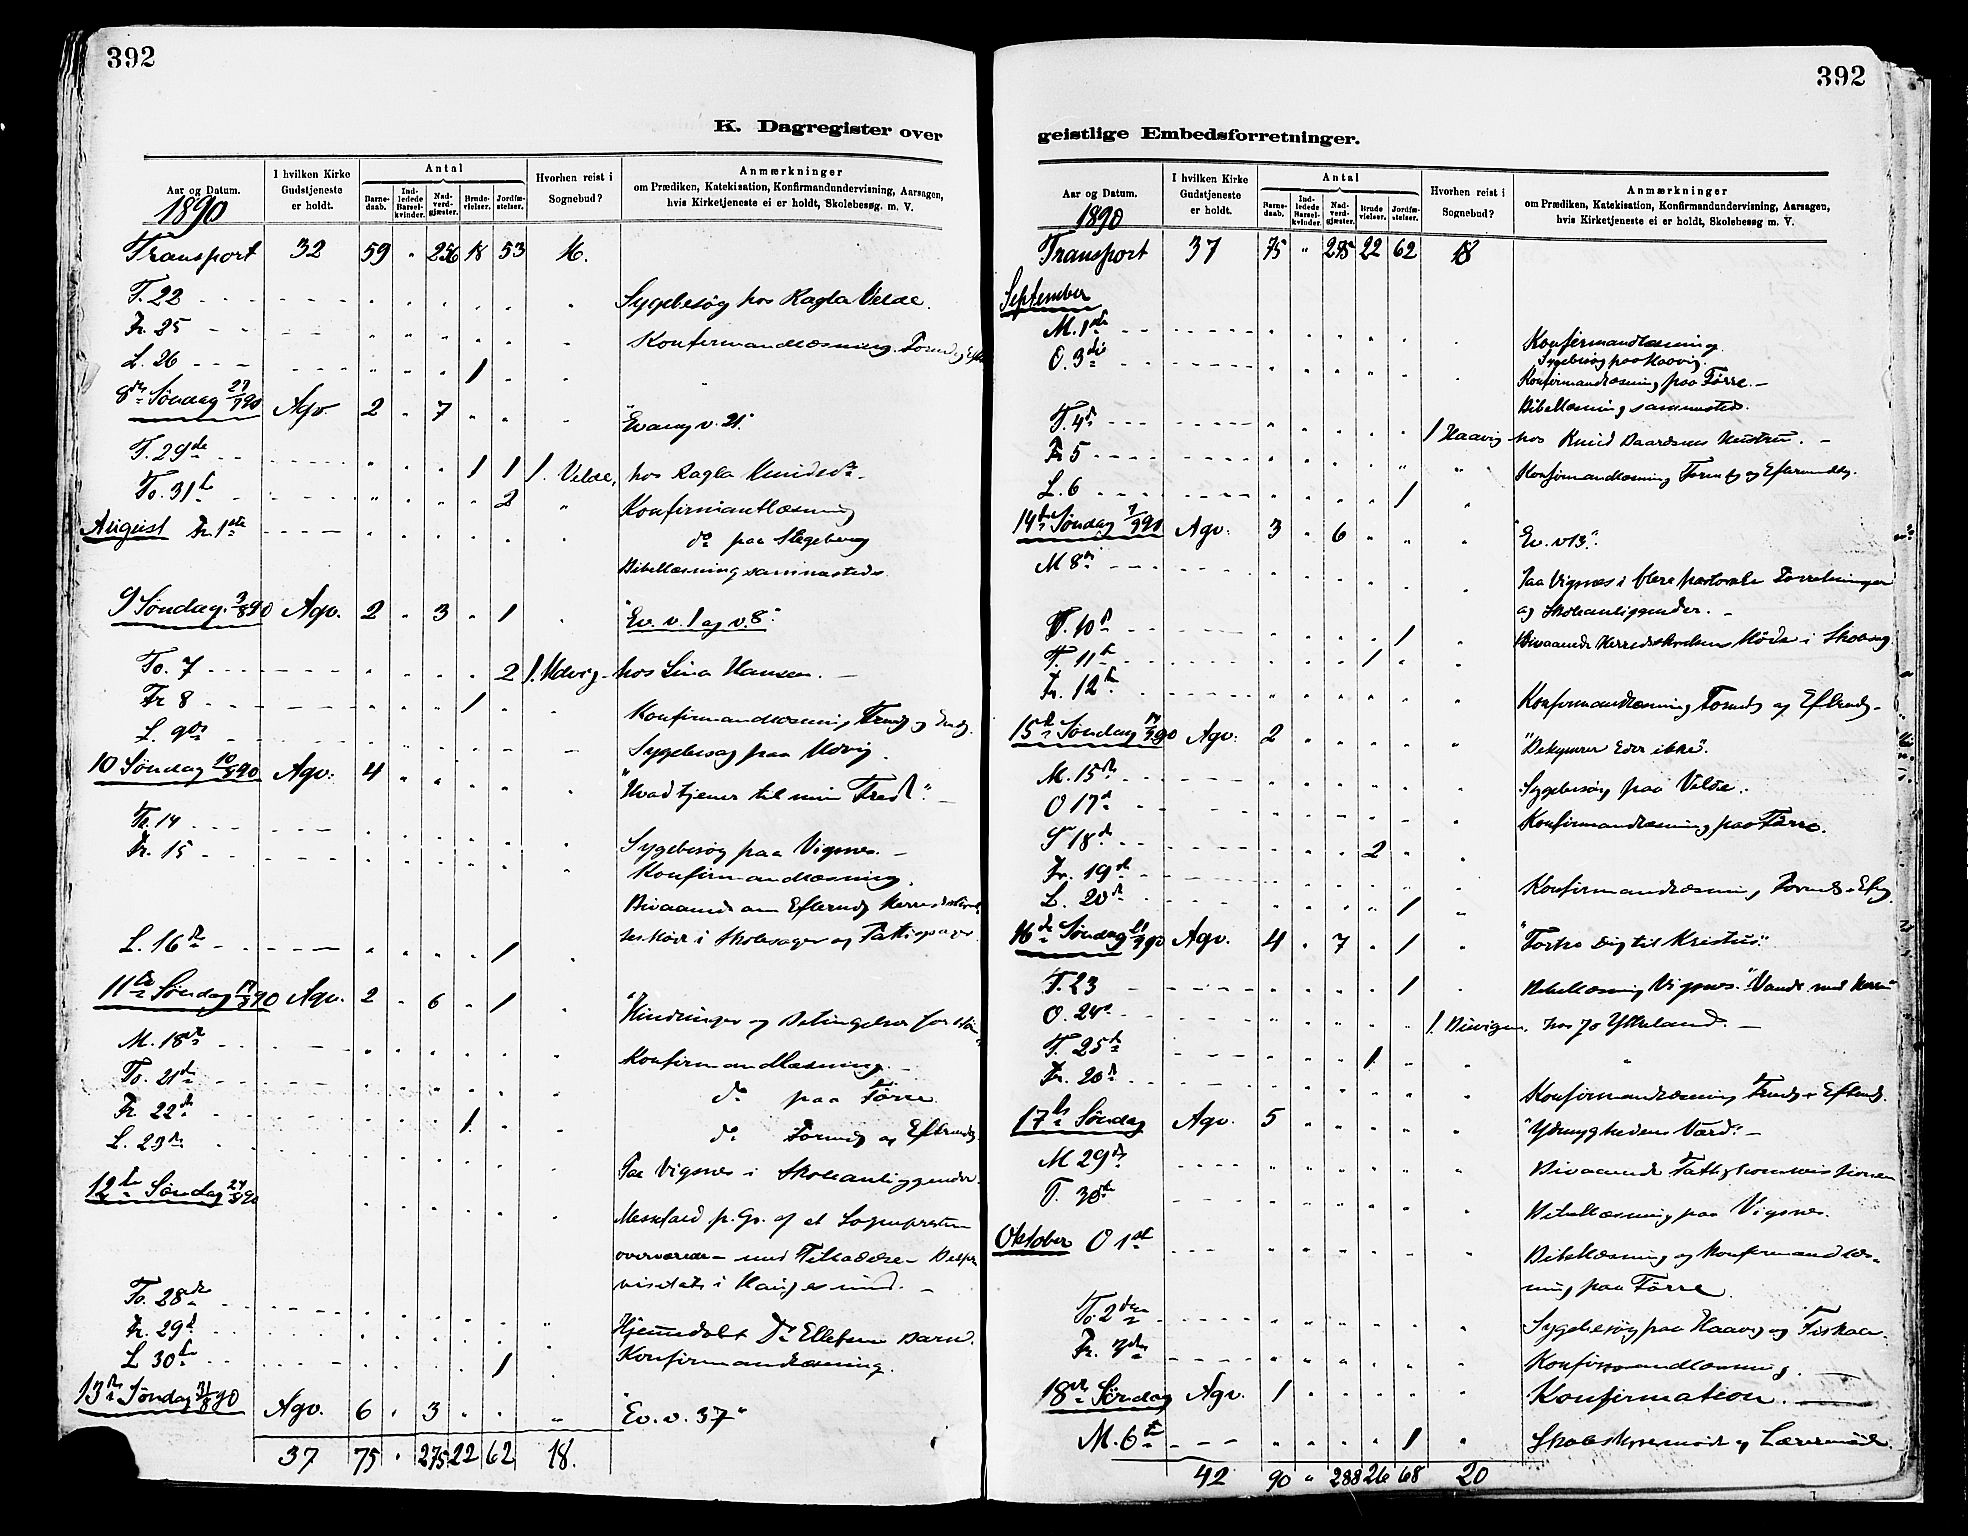 392
K. Dagregister over
Aar og Datum. 1890
I hvilken Kirke Gudstjeneste er holdt.
Antal
Barnedaab. Indledede Barselkvinder. Nadverdgjæster. Brudevielser. Jordfæstelser.
Hvorhen reist i Sognebud?
Anmærkninger
om Prædiken, Katekisation, Konfirmandundervisning, Aarsagen,
hvis Kirketjeneste ei er holdt, Skolebesøg. m. V.
Transport 32 59 " 256 18 53 16.
T. 22 Sygebesøg hos Ragla Velde.
Fr. 25 Konfirmandlæsning
L. 26 1
8de Søndag 27/7 90 Agv 2 " 7 "Evang v. 21."
T. 29de 1 1 1. Velde, hos Ragla
To. 31te 2 Konfirmantlæsning
August Fr. 1ste do paa Stegeberg
Bibellæsning sammesteds
9 Søndag 3/8 90 Agv. 2 " 3 " 1 "Ev. v. 1 og v. 8."
To. 7 2 1. Udvig hos Lina Hansen.
Fr 8 1 Konfirmandlæsning
L. 9de Sygebesøg paa Udvig.
10 Søndag 10/8 90 Agv. 4 "Hvad tjener til min Fred".
To. 14 Sygebesøg paa Vigsnes.
Fr. 15 Konfirmandlæsning.
Bivaanede
i Skolesager og
L. 16de 1
11te Søndag 17/8 90 Agv. 2 " 6 " 1 "Hindringer og Betingelser for
M. 18de Konfirmandlæsning
To. 21de do paa Førre
Fr 22de 1 do Formdg og Eftermdg
L. 23de Paa Vigsnes i Skoleanliggender.
12te Søndag 24/8 90 Messefald p. Gr. af at Sognepresten
overværede med Tilladelse
i Haugesund.
To. 28de Hjemmedøbt Ellefsen Barn.
Fr. 29de Konfirmandlæsning.
L 30te 1
13de Søndag 31/8 90 Agv. 6 " 3 "Ev. v. 37"
37 75 " 275 22 62 18.
392
geistlige Embedsforretninger.
Aar og Datum. 1890
I hvilken Kirke Gudstjeneste er holdt.
Antal
Barnedaab. Indledede Barselkvinder. Nadverdgjæster. Brudevielser. Jordfæstelser.
Hvorhen reist i Sognebud?
Anmærkninger
om Prædiken, Katekisation, Konfirmandundervisning, Aarsagen,
hvis Kirketjeneste ei er holdt, Skolebesøg m. V.
Transport 37 75 " 275 22 62 18
September
M. 1ste Konfirmandlæsning
Sygebesøg paa Haavig.
O. 3die Konfirmandlæsning paa Førre.
Bibellæsning sammesteds.
T. 4de 1 Haavig hos Knud Baardsens Hustru.
Fr 5 Konfirmandlæsning Formdg og Eftermiddg.
L. 6 1
14de Søndag 7/9 90 Agv. 3 " 6 "Ev. v 13".
M 8de Paa Vigsnes i flere pastorale Forretninger
og Skoleanliggender.
10de 1 Bivaanede Herredsstyrelsens Møde i
T. 11te 1
Fr. 12te Konfirmandlæsning Formdg og Eftermdg.
15de Søndag 14/9 90 Agv. 2 "Bekymrer Eder ikke".
M. 15de Sygebesøg paa Velde.
O 17de Konfirmandlæsning paa Førre.
T 18de 2
Fr. 19de Konfirmandlæsning
L. 20de 1
16de Søndag 21/9 90 Agv. 4 " 7 " 1 til Kristus."
T. 23 1 Bibellæsning Vigsnes.
O. 24de 1. hos Jo Ytteland.
T. 25de 1
Fr. 26de Konfirmandlæsning
17de Søndag Agv. 5 "Ydmyghedens Værd".
M 29de Bivaanede Fattigkommissionen
T. 30te Bibellæsning paa Vigsnes.
Oktober O 1ste Bibellæsning og Konfirmandlæs-
ning paa Førre
To. 2den Sygebesøg paa Haavig og Fiskaa.
Fr. 3die Konfirmandlæsning.
18de Søndag Agv. 1 Konfirmation.
M. 6te 1 Skolestyremøde og Lærermøde
42 90 " 288 26 68 20